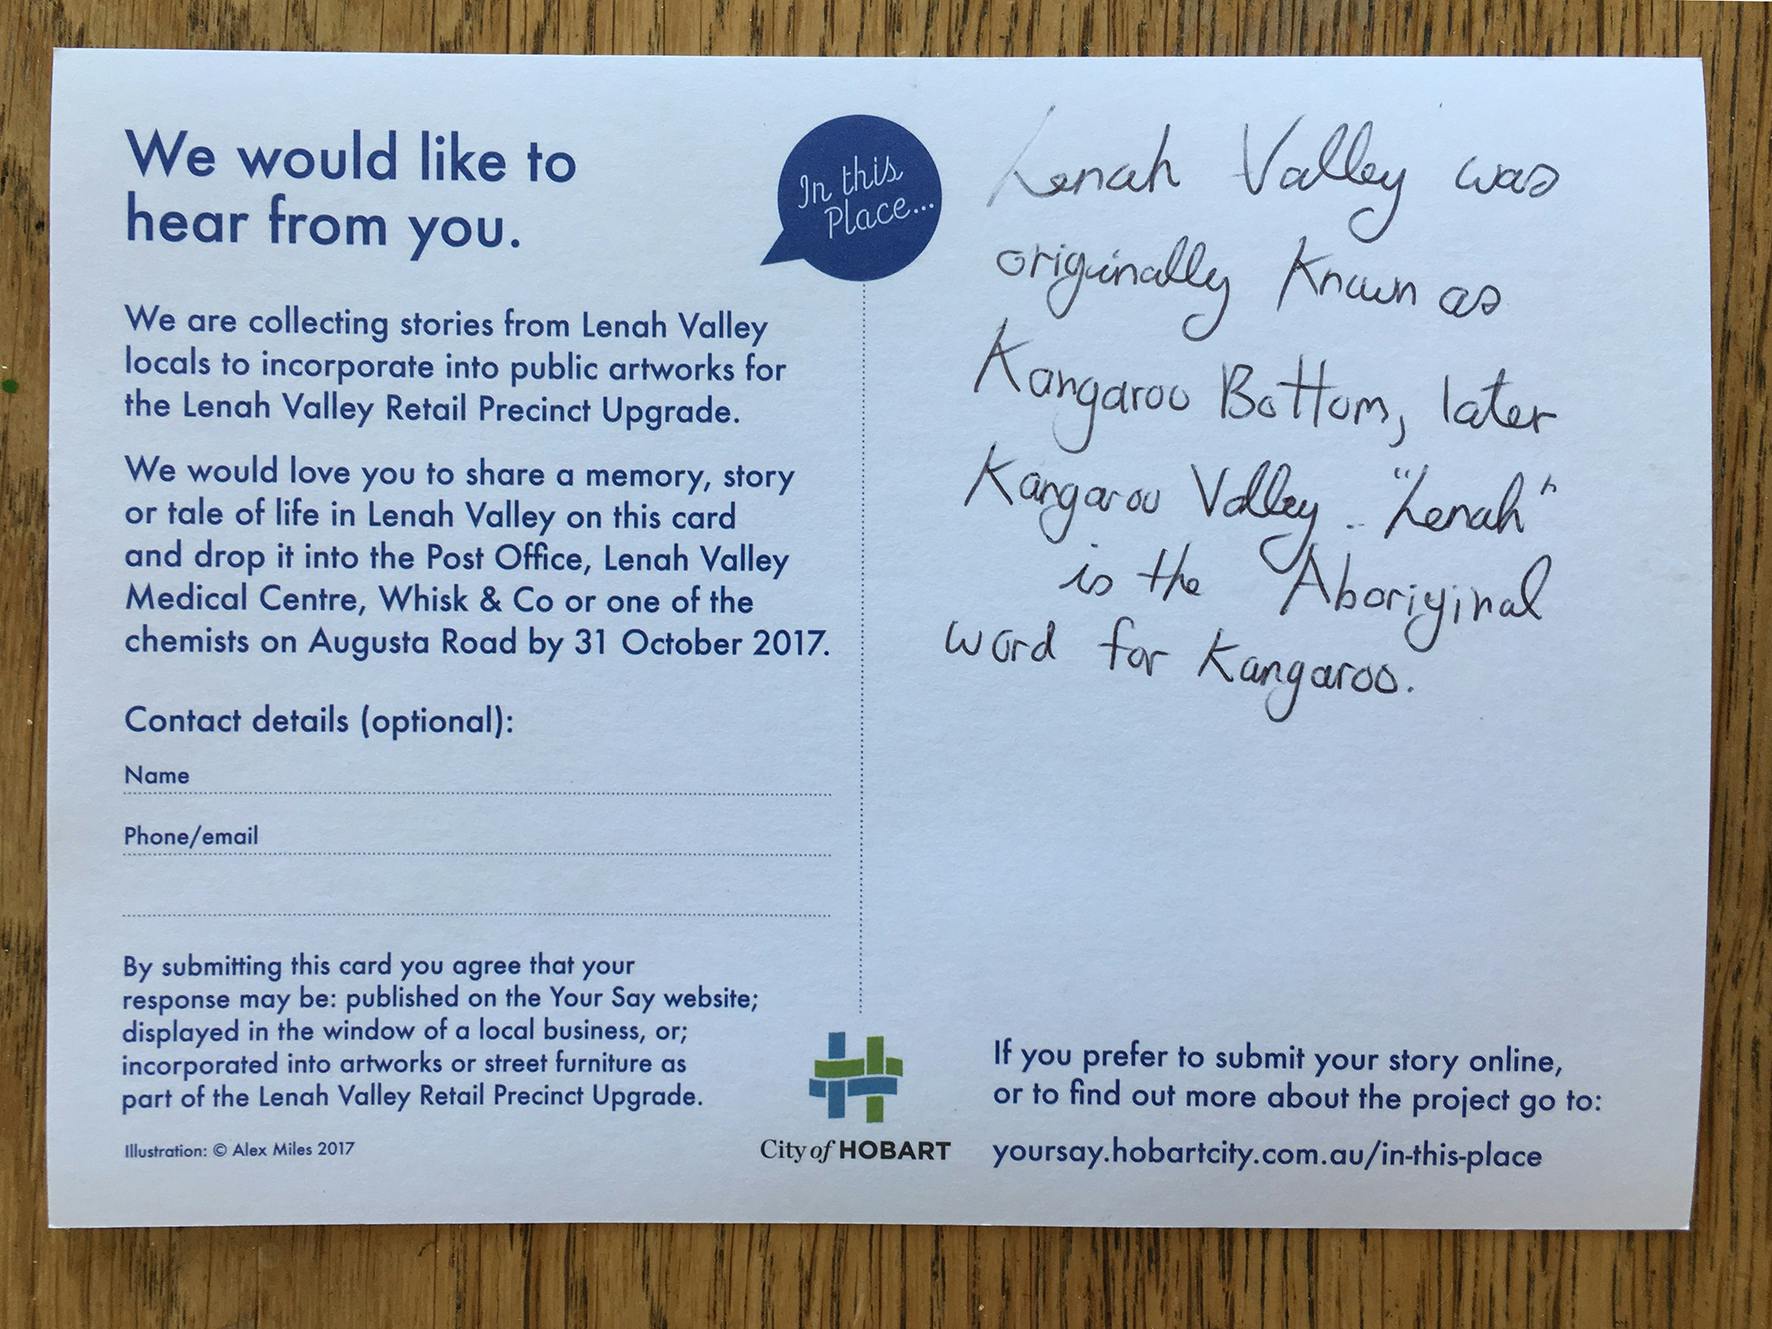 We would like to
hear from you.
In this
Place...
We are collecting stories from Lenah Valley
locals to incorporate into public artworks for
the Lenah Valley Retail Precinct Upgrade.
We would love you to share a memory, story
or tale of life in Lenah Valley on this card
and drop it into the Post Office, Lenah Valley
Medical Centre, Whisk & Co or one of the
chemists on Augusta Road by 31 October 2017.
Contact details (optional):
Name
Phone/email
By submitting this card you agree that your
response may be: published on the Your Say website;
displayed in the window of a local business, or;
incorporated into artworks or street furniture as
part of the Lenah Valley Retail Precinct Upgrade.
Illustration: © Alex Miles 2017
City of HOBART
Lenah Valley was
originally known as
Kangaroo Bottom, later
Kangaroo Valley.. "Lenah"
is the Aboriginal
word for Kangaroo.
If you prefer to submit your story online,
or to find out more about the project go to:
yoursay.hobartcity.com.au/in-this-place